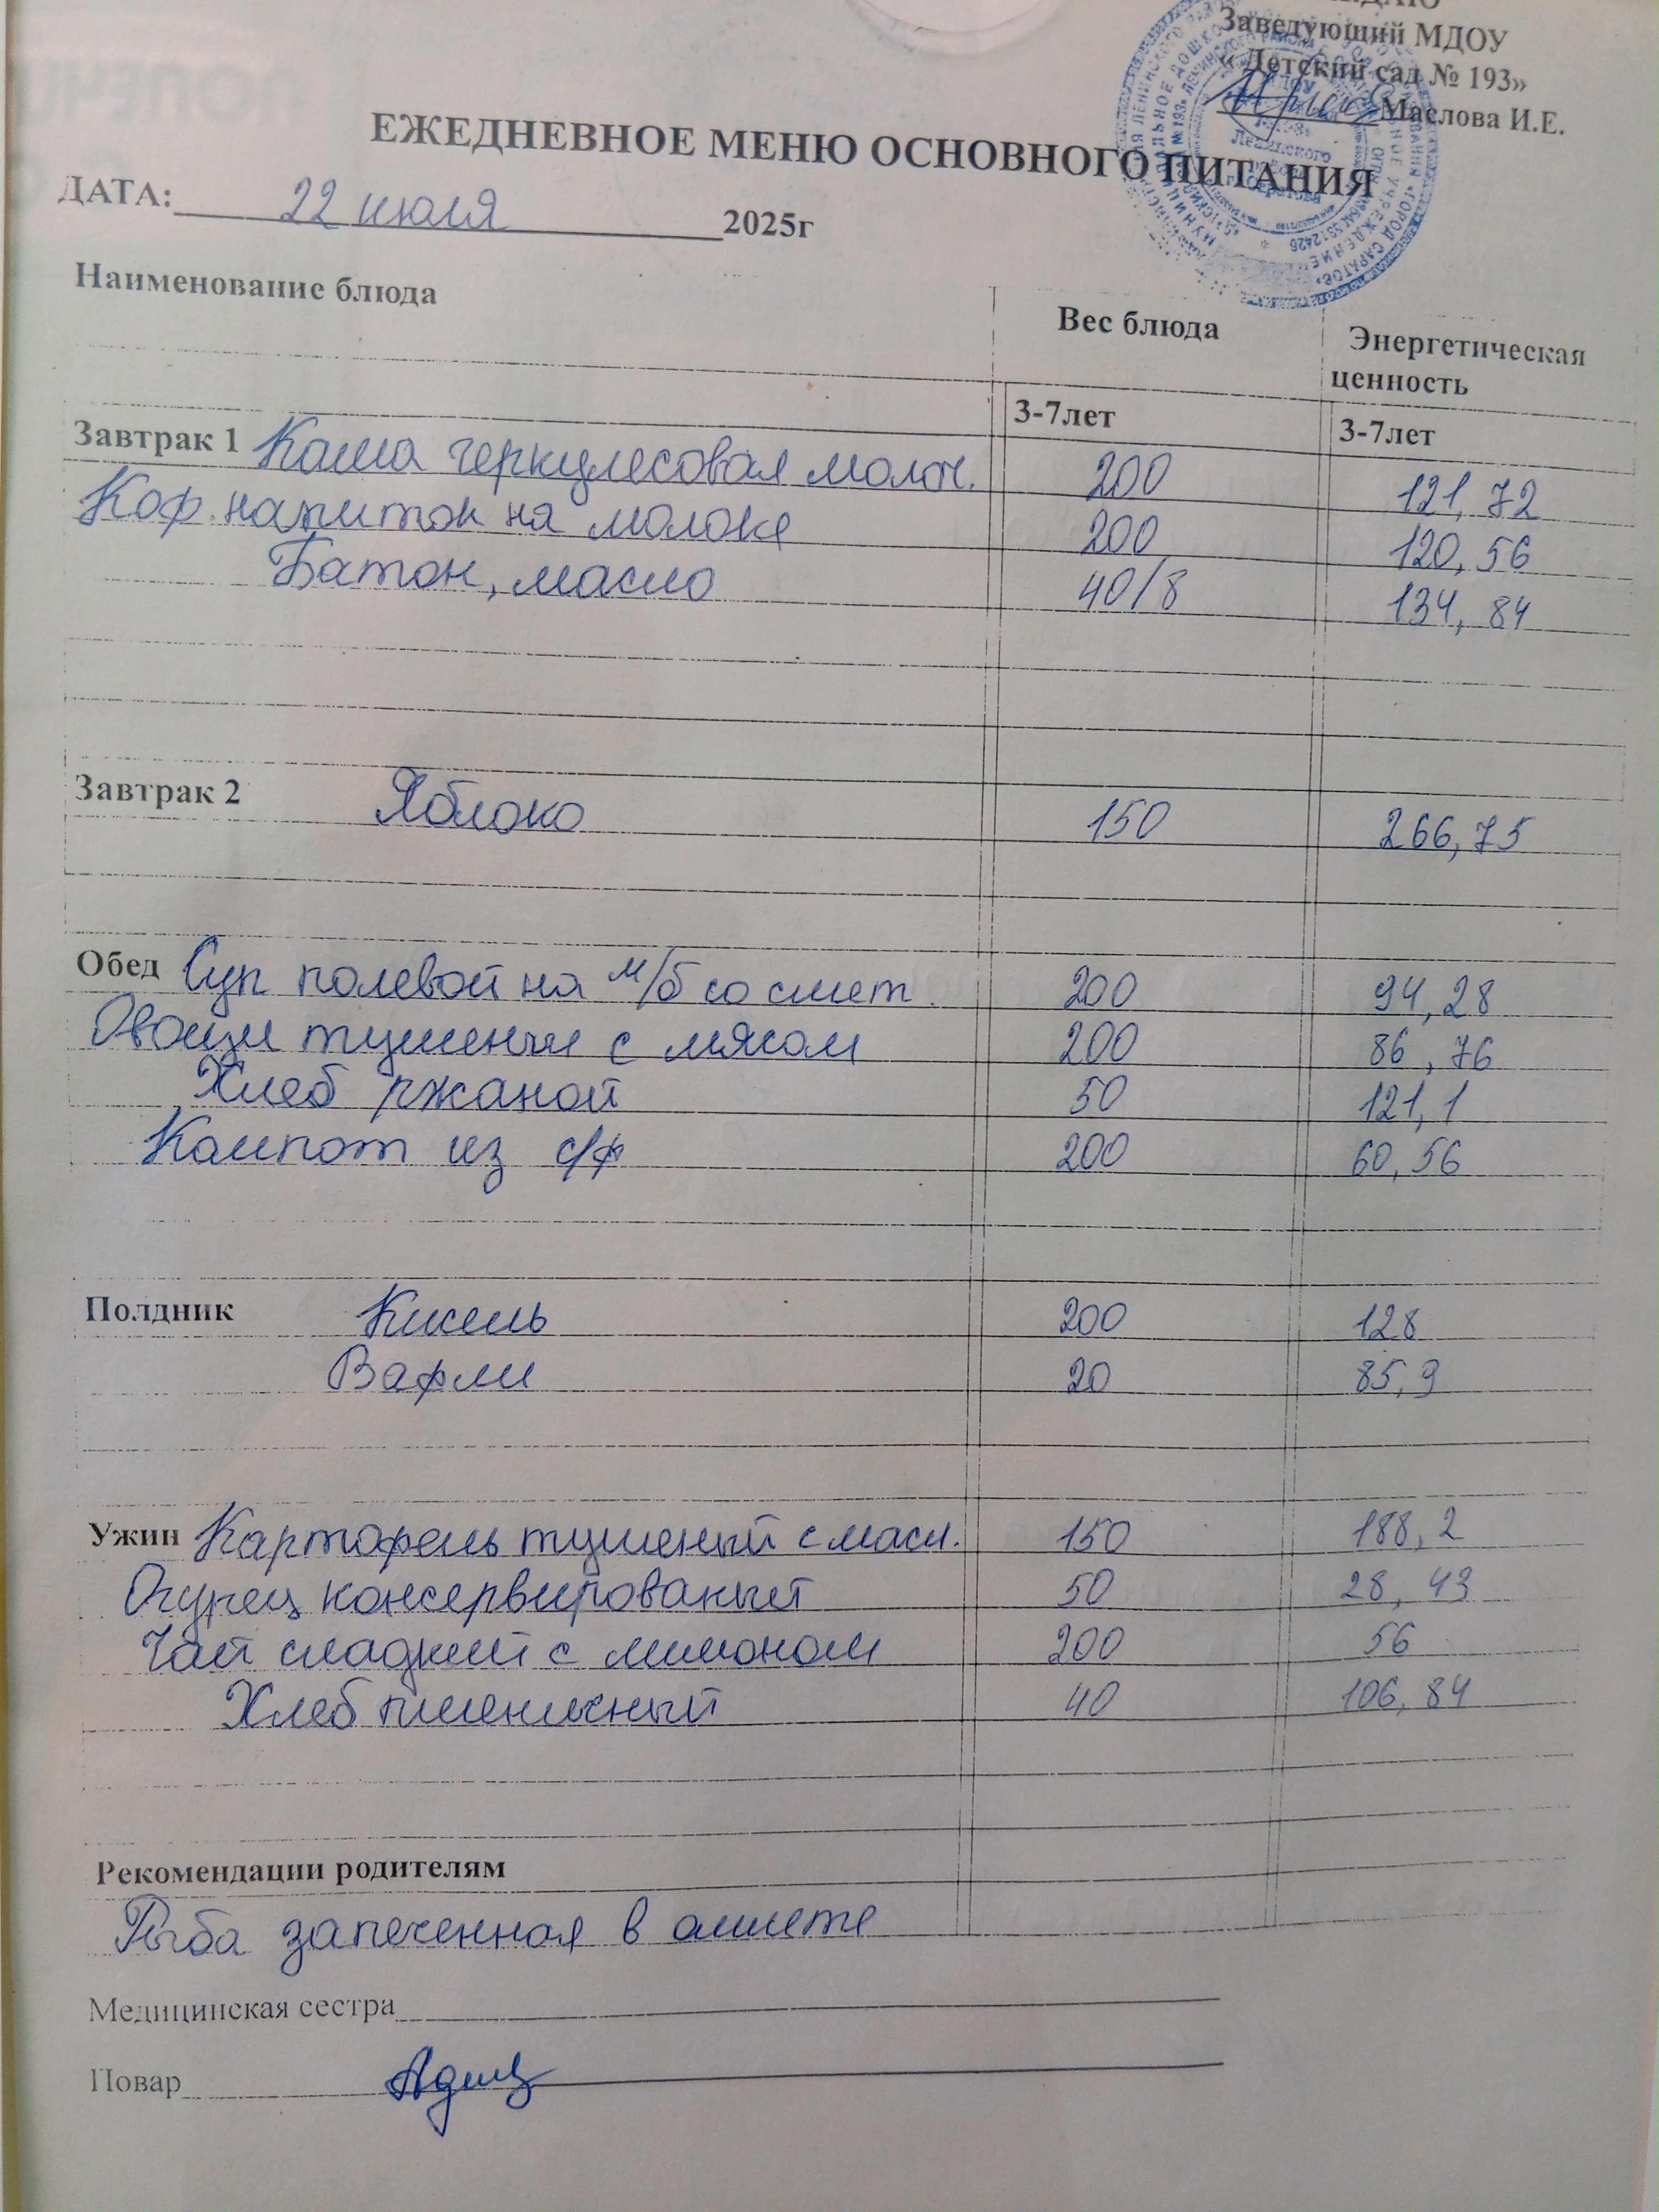 Заведующий МДОУ
« Детский сад № 193»
Маслова И.Е.
ЕЖЕДНЕВНОЕ МЕНЮ ОСНОВНОГО ПИТАНИЯ
ДАТА: 22 июля 2025г
Наименование блюда Вес блюда Энергетическая ценность
3-7лет 3-7лет
Завтрак 1 Каша геркулесовая молоч. 200 121,72
Коф. напиток на молоке 200 120,56
Батон, масло 40/8 134,84
Завтрак 2 Яблоко 150 266,75
Обед Суп полевой на м/б со смет. 200 94,28
Овощи тушеные с мясом 200 86,76
Хлеб ржаной 50 121,1
Компот из с/ф 200 60,56
Полдник Кисель 200 128
Вафли 20 85,9
Ужин Картофель тушеный с масл. 150 188,2
Огурец консервированый 50 28,43
Чай сладкий с лимоном 200 56
Хлеб пшеничный 40 106,84
Рекомендации родителям
Рыба запеченная в омлете
Медицинская сестра
Повар